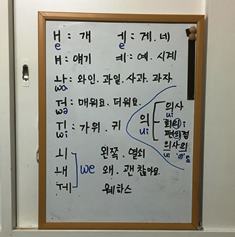 ㅐ : 개 ㅔ : 게. 네
e e
ㅒ : 얘기 ㅖ : 예. 시계
ㅘ : 와인. 과일. 사과. 과자
wa
ㅝ : 매워요. 더워요.
wə
ㅟ : 가위. 귀
wi
ㅢ
ui
의사
ui
회의
i
편의점
의사의
ui
ㅚ 왼쪽. 열쇠
ㅙ we 왜. 괜찮아요.
ㅞ 웨하스